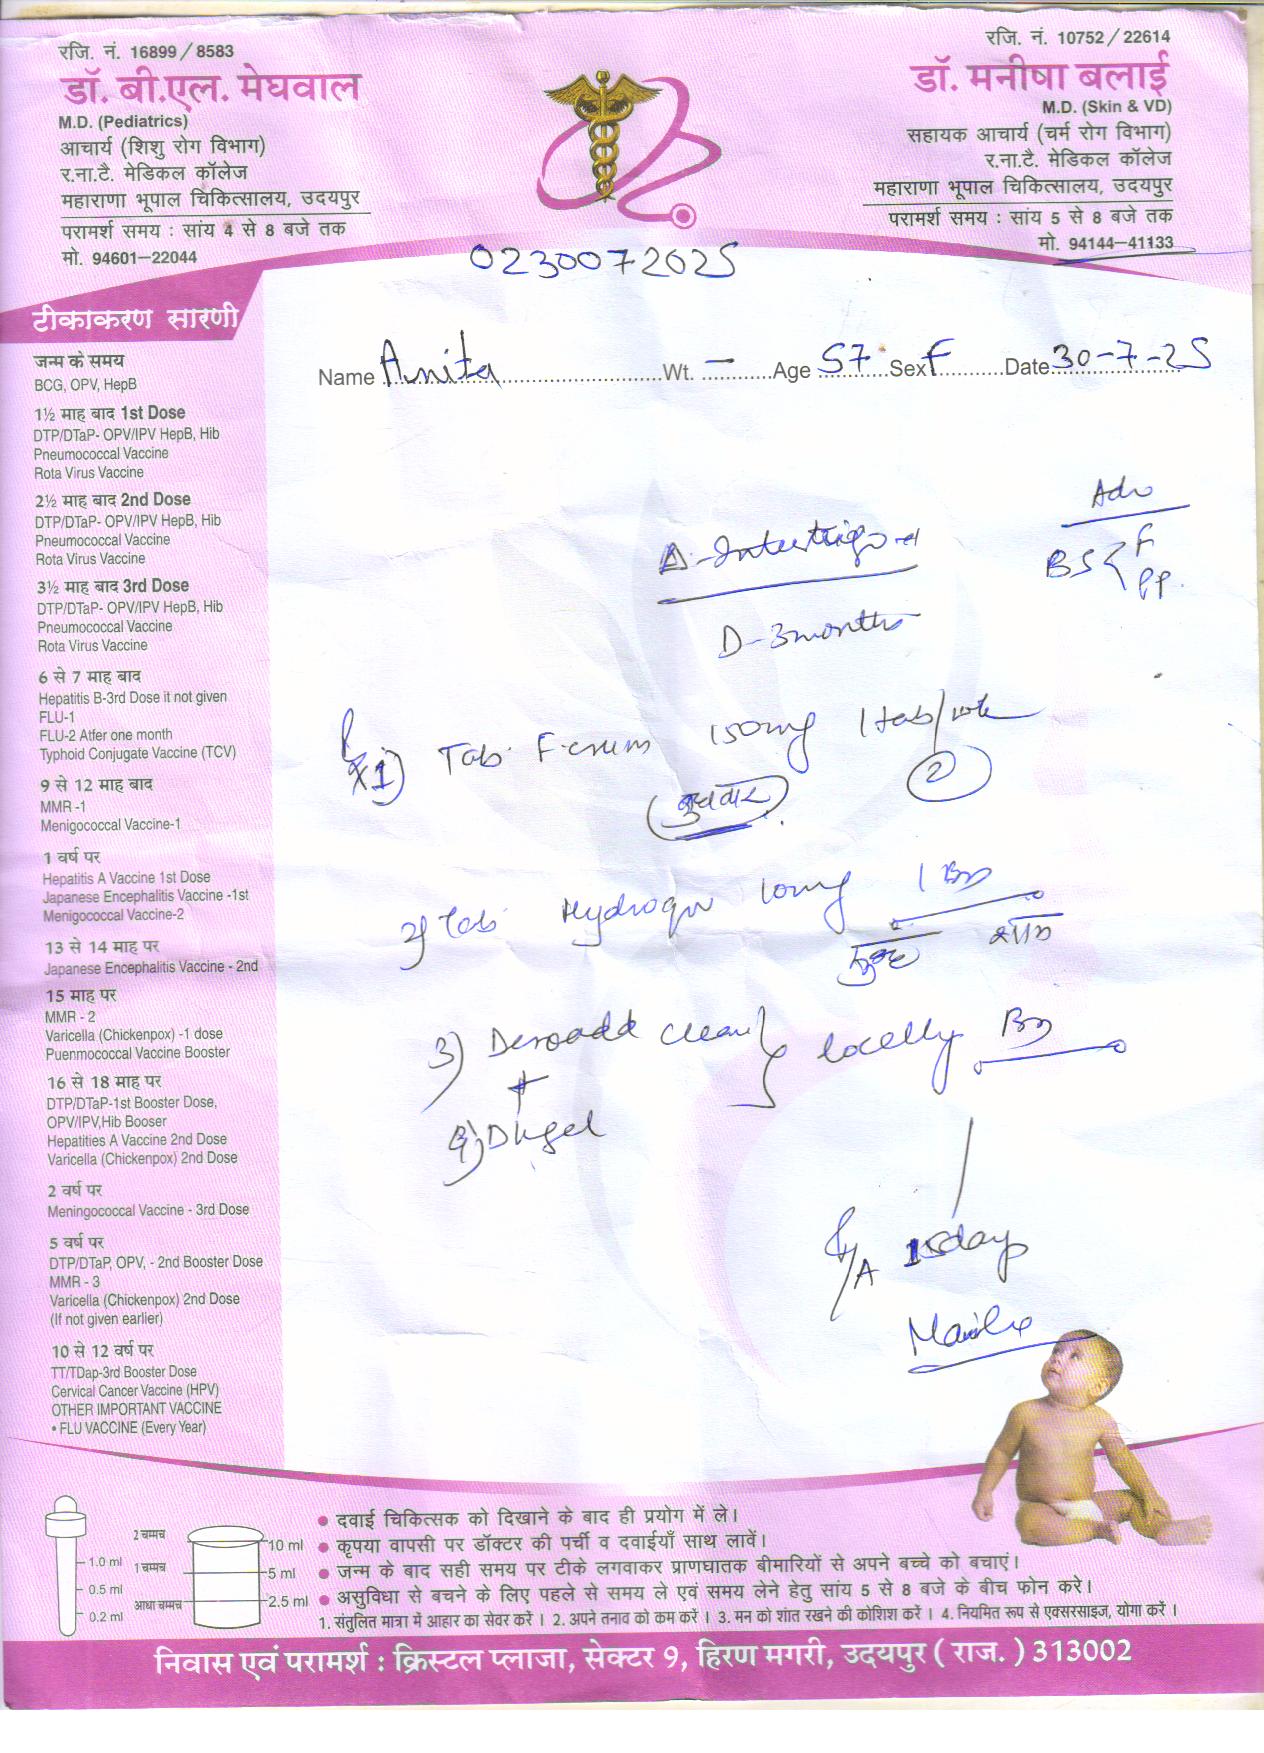 रजि. नं. 16899/8583
डॉ. बी.एल. मेघवाल
M.D. (Pediatrics)
आचार्य (शिशु रोग विभाग)
र.ना.टै. मेडिकल कॉलेज
महाराणा भूपाल चिकित्सालय, उदयपुर
परामर्श समय : सांय 4 से 8 बजे तक
मो. 94601-22044
रजि. नं. 10752/22614
डॉ. मनीषा बलाई
M.D. (Skin & VD)
सहायक आचार्य (चर्म रोग विभाग)
र.ना.टै. मेडिकल कॉलेज
महाराणा भूपाल चिकित्सालय, उदयपुर
परामर्श समय : सांय 5 से 8 बजे तक
मो. 94144-41133
0230072025
Name Anita Wt. - Age 57 Sex F Date 30-7-25
टीकाकरण सारणी
जन्म के समय
BCG, OPV, HepB
1½ माह बाद 1st Dose
DTP/DTaP- OPV/IPV HepB, Hib
Pneumococcal Vaccine
Rota Virus Vaccine
2½ माह बाद 2nd Dose
DTP/DTaP- OPV/IPV HepB, Hib
Pneumococcal Vaccine
Rota Virus Vaccine
3½ माह बाद 3rd Dose
DTP/DTaP- OPV/IPV HepB, Hib
Pneumococcal Vaccine
Rota Virus Vaccine
6 से 7 माह बाद
Hepatitis B-3rd Dose it not given
FLU-1
FLU-2 Atfer one month
Typhoid Conjugate Vaccine (TCV)
9 से 12 माह बाद
MMR -1
Menigococcal Vaccine-1
1 वर्ष पर
Hepatitis A Vaccine 1st Dose
Japanese Encephalitis Vaccine -1st
Menigococcal Vaccine-2
13 से 14 माह पर
Japanese Encephalitis Vaccine - 2nd
15 माह पर
MMR - 2
Varicella (Chickenpox) -1 dose
Puenmococcal Vaccine Booster
16 से 18 माह पर
DTP/DTaP-1st Booster Dose,
OPV/IPV,Hib Booser
Hepatities A Vaccine 2nd Dose
Varicella (Chickenpox) 2nd Dose
2 वर्ष पर
Meningococcal Vaccine - 3rd Dose
5 वर्ष पर
DTP/DTaP, OPV, - 2nd Booster Dose
MMR - 3
Varicella (Chickenpox) 2nd Dose
(If not given earlier)
10 से 12 वर्ष पर
TT/TDap-3rd Booster Dose
Cervical Cancer Vaccine (HPV)
OTHER IMPORTANT VACCINE
• FLU VACCINE (Every Year)
Adv
BS < F
PP
Δ-Intertrigo
D-3 months
Rx 1) Tab 150mg 1 tab/wk
(बुधवार) 2
2) Tab 10mg 1 BD
सुबह शाम
3) clean } locally BD
+
4)
15 days
2 चम्मच
1 चम्मच
आधा चम्मच
1.0 ml
0.5 ml
0.2 ml
10 ml
5 ml
2.5 ml
● दवाई चिकित्सक को दिखाने के बाद ही प्रयोग में ले।
● कृपया वापसी पर डॉक्टर की पर्ची व दवाईयाँ साथ लावें।
● जन्म के बाद सही समय पर टीके लगवाकर प्राणघातक बीमारियों से अपने बच्चे को बचाएं।
● असुविधा से बचने के लिए पहले से समय ले एवं समय लेने हेतु सांय 5 से 8 बजे के बीच फोन करे।
1. संतुलित मात्रा में आहार का सेवर करें । 2. अपने तनाव को कम करें । 3. मन को शांत रखने की कोशिश करें । 4. नियमित रूप से एक्सरसाइज, योगा करें ।
निवास एवं परामर्श : क्रिस्टल प्लाजा, सेक्टर 9, हिरण मगरी, उदयपुर ( राज. ) 313002